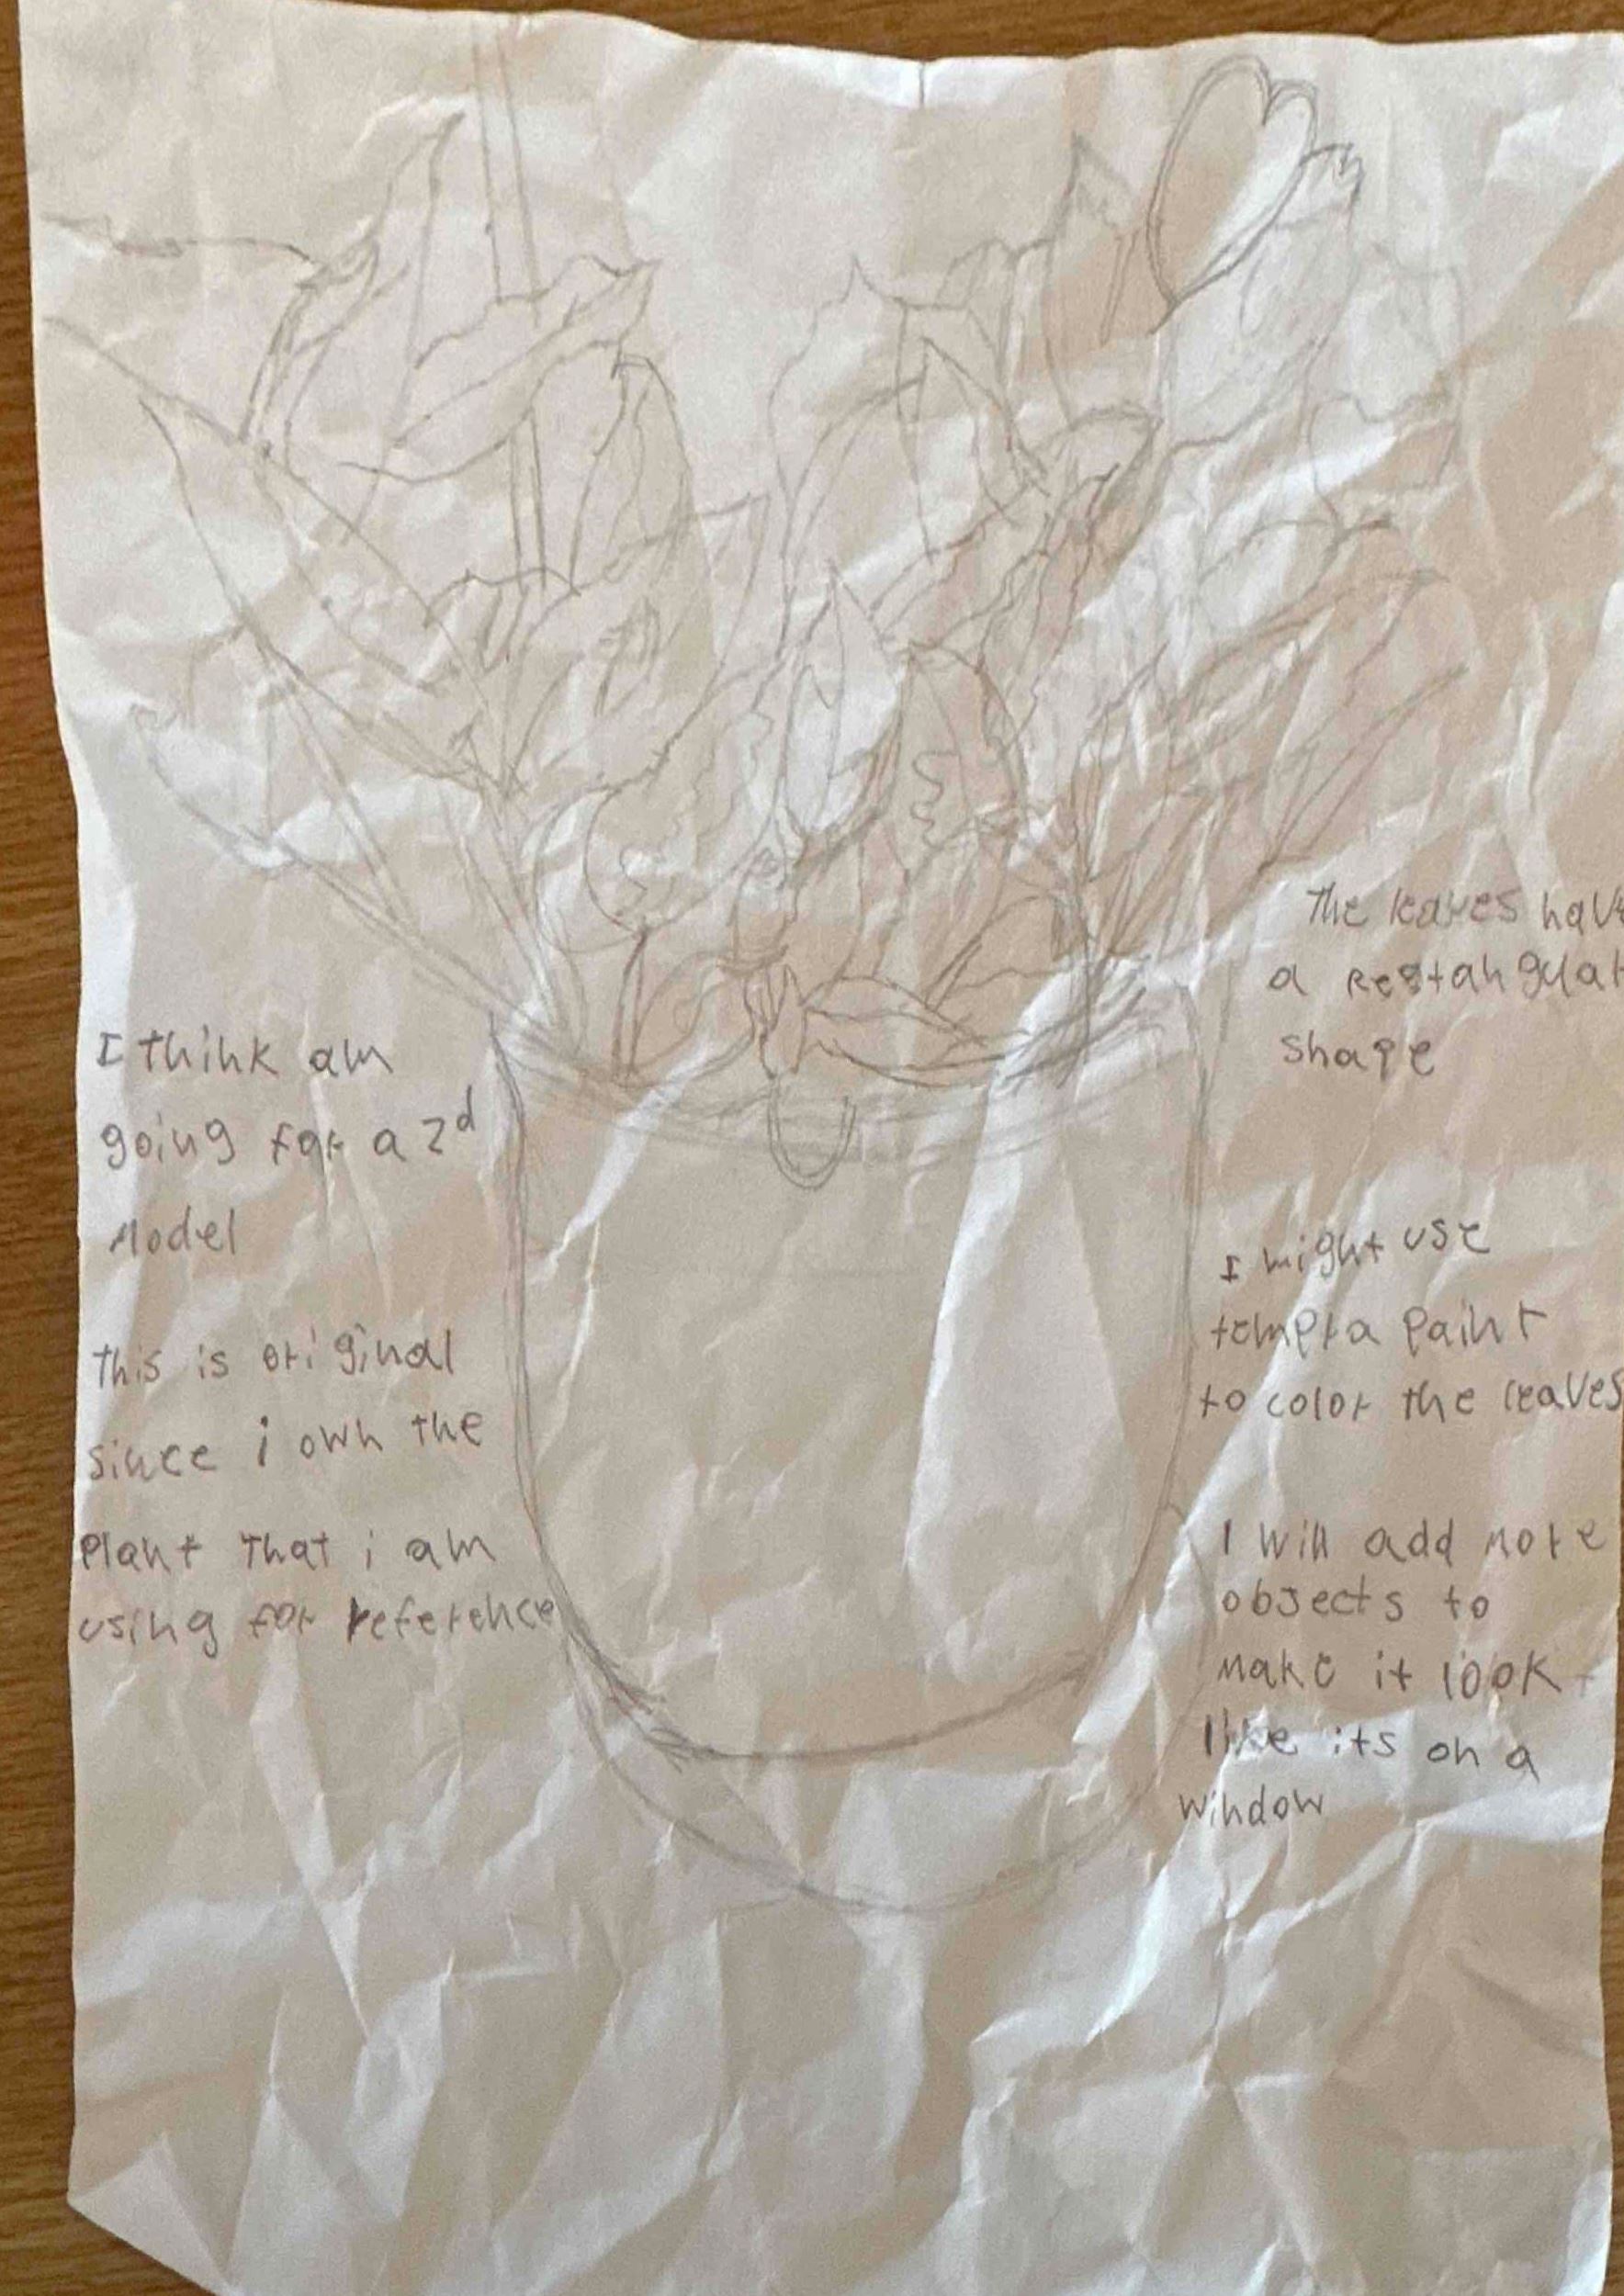 I think am
going for a 2d
Model
This is original
since i own the
Plant that i am
using for reference
The leaves hav
a restangular
shape
I might use
tempra paint
to color the leaves
I will add more
objects to
make it look
like its on a
window